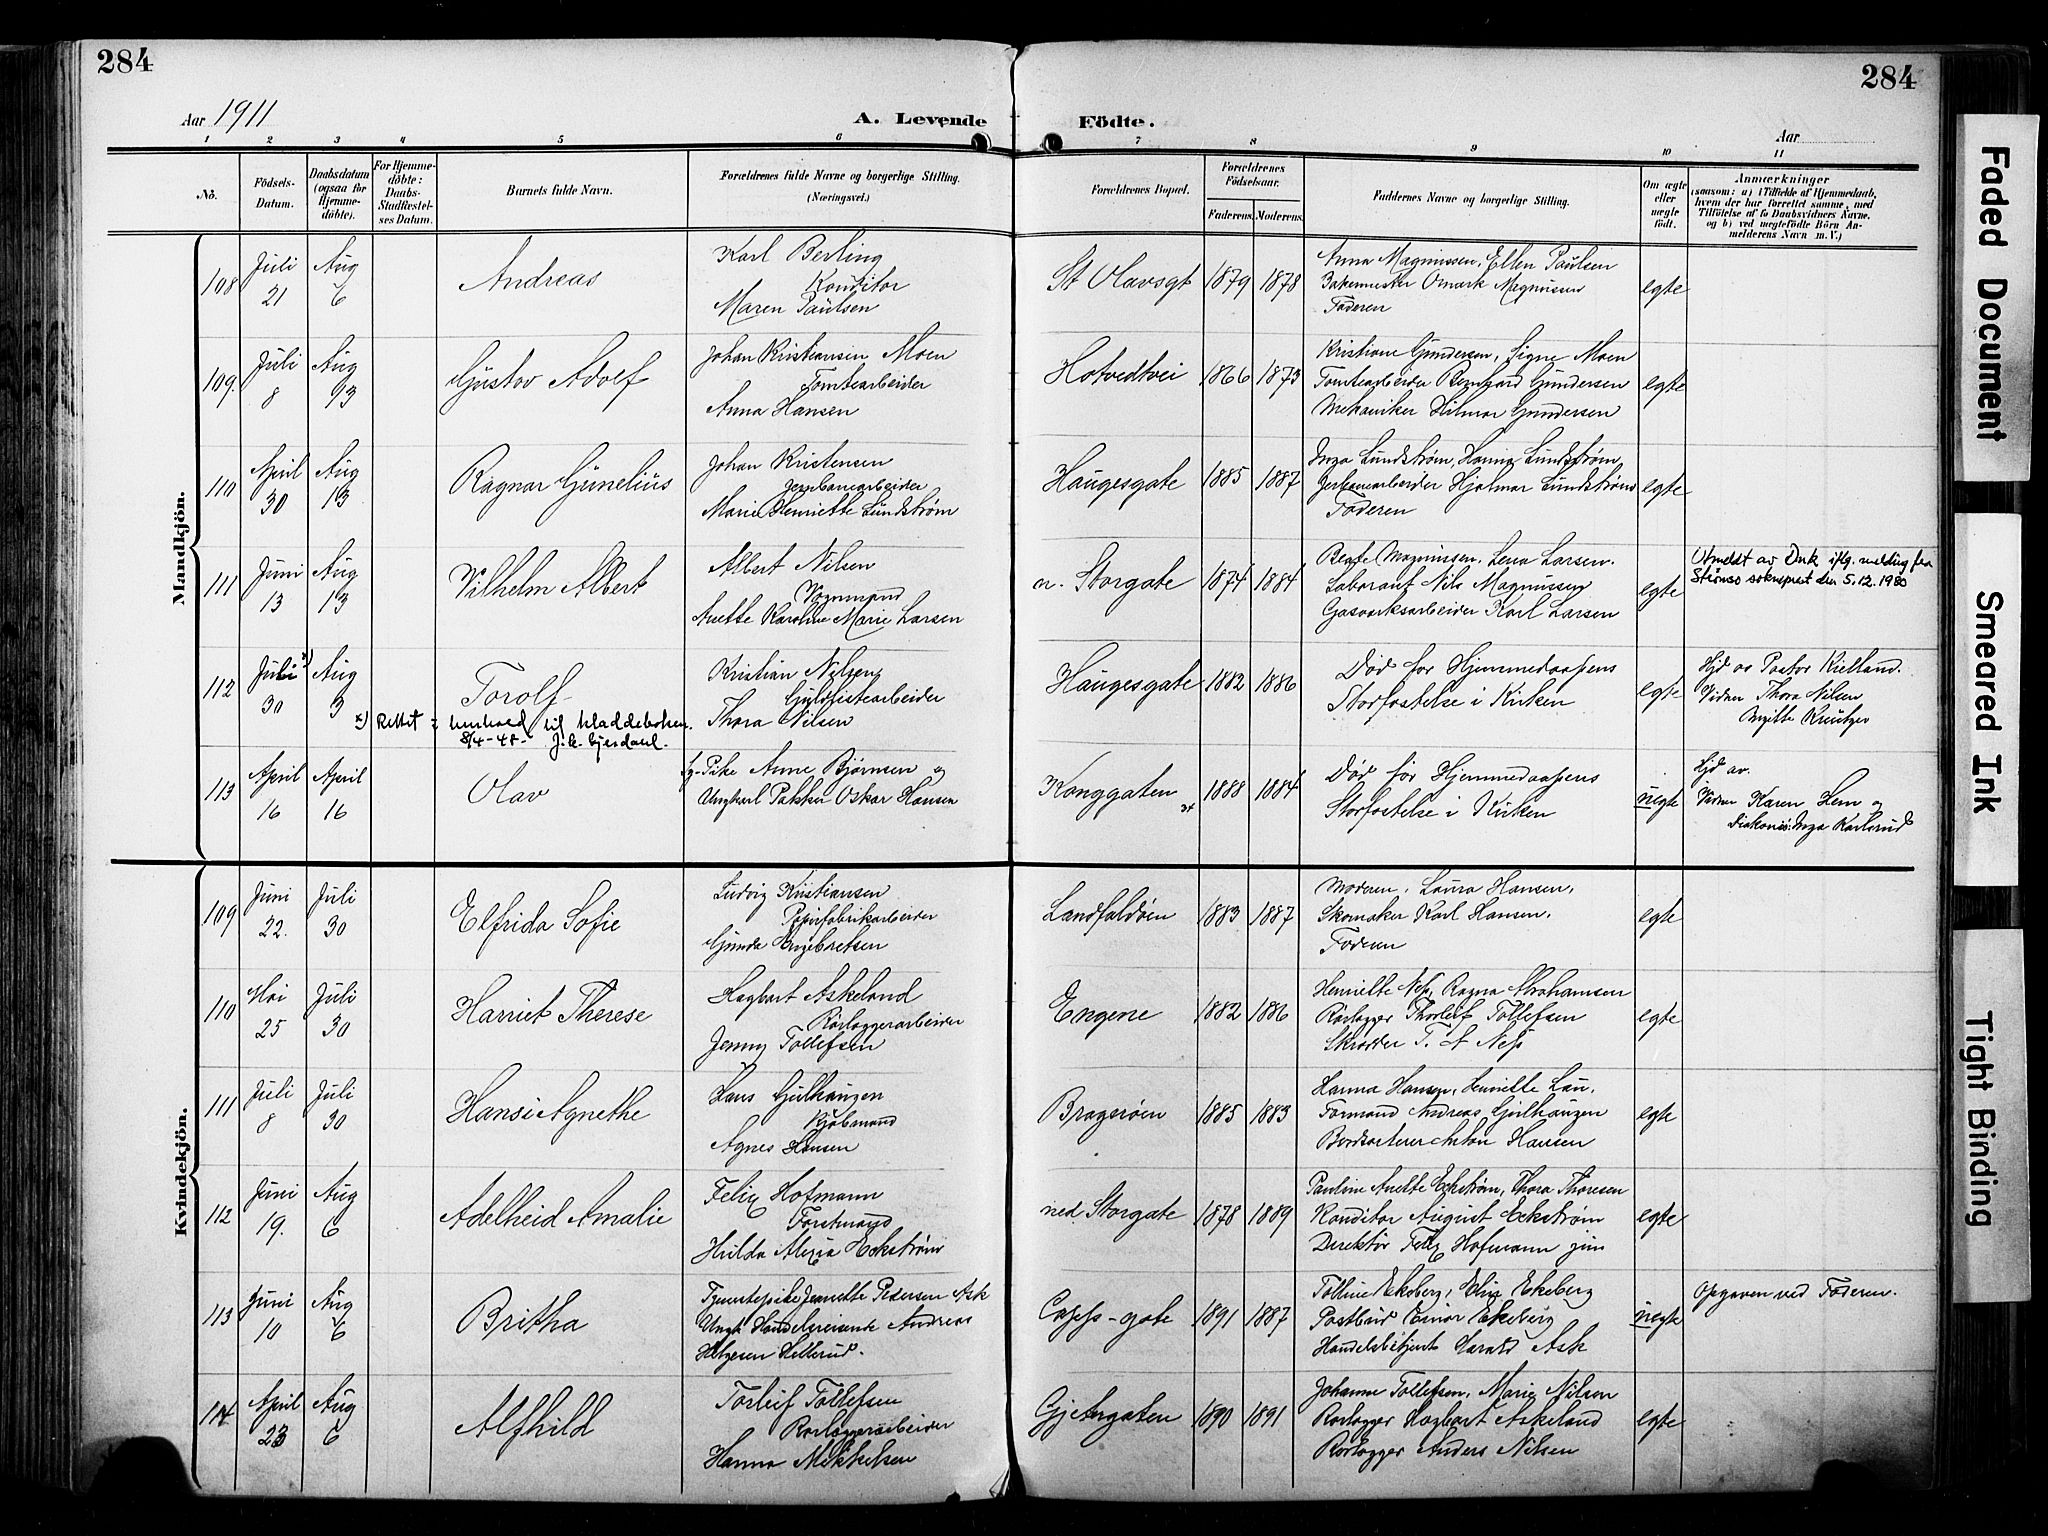 284
284
Aar 1911
A. Levende Födte.
Aar
1 2 3 4 5 6 7 8 9 10 11
No.
Födsels-Datum.
Daabsdatum (ogsaa for Hjemme-döbte).
For Hjemme-döbte: Daabs-Stadfæstel-ses Datum.
Barnets fulde Navn.
Forældrenes fulde Navne og borgerlige Stilling. (Næringsvei.)
Forældrenes Bopæl.
Forældrenes Födselsaar.
Faderens. Moderens.
Faddernes Navne og borgerlige Stilling.
Om ægte eller uægte födt.
Anmærkninger
(saasom: a) i Tilfælde af Hjemmedaab,
hvem der har forrettet samme, med
Tilföielse af to Daabsvidners Navne,
og b) ved uegtefödte Börn An-
melderens Navn m. V.)
Mandkjön.
108 Juli 21 Aug 6 Andreas
Karl Berling
Konditor
Maren Paulsen
St Olavsgt 1879 1878
Anna Magnussen, Ellen Paulsen
Magnussen
Faderen
egte
109. Juli 8 Aug 13 Gustav Adolf
Johan Kristiansen Moen
Tomtearbeider
Anna Hansen
Hotvedtvei 1866 1873
Kristiane Gundersen, Signe Moen
Tomtearbeider Bernhard Gundersen
Mekaniker Hilmar Gundersen
egte
110 April 30 Aug 13 Ragnar Gunelius
Johan Kristensen
Jernbanearbeider
Marie Henriette Lundstrøm
Haugesgate 1885 1887
Inga Lundstrøm, Hanna Lundstrøm,
Hjalmar Lundstrøm
Faderen
egte
111 Juni 13 Aug 13 Vilhelm Albert
Albert Nilsen
Vognmand
Anette Karoline Marie Larsen
n. Storgate 1874 1884
Magnussen, Lena Larsen.
Laborant Nils Magnussen
Gasverksarbeider Karl Larsen
egte
Utmeldt av Dnk iflg. melding fra
Strømsø sokneprest den 5.12.1980
112 Juli x) 30 Aug 3 Torolf
Kristian Nilsen
Guldlistearbeider
Thora Nilsen
Haugesgate 1882 1886
Død før Hjemmedaapens
Stadfestelse i Kirken
egte
Hjd av Pastor Kielland.
Vidner Thora Nilsen
x) Rettet i henhold til kladdeboken.
8/4-48-
113 April 16 April 16 Olav
Pike Anne Bjørnsen og
Ungkarl Pakker Oskar Hansen
Konggaten 1888 1884
Død før Hjemmedaapens
Stadfestelse i Kirken
uegte
Hjd av.
Vidner Karen Lem og
Diakonis: Inga Karlsrud
Kvindekjön.
109 Juni 22. Juli 30 Elfrida Sofie
Ludvig Kristiansen
Papirfabrikarbeider
Gunda Engebretsen
Landfaldøen 1883 1887
Moderen, Laura Hansen,
Skomaker Karl Hansen.
Faderen
egte
110 Mai 25 Juli 30 Harriet Therese
Hagbart Askeland
Rørlæggerarbeider
Jenny Tollefsen
Engene 1882 1886
Henriette Ness, Ragna Abrahamsen
Rørlægger Thorleif Tollefsen
Skrædder T. A Ness
egte
111 Juli 8 Juli 30 Hansi Agnethe
Hans Gulhaugen
Kjøbmand
Agnes Hansen
Bragerøen 1885 1883
Hanna Hansen, Henriette Lau.
Formand Andreas Gulhaugen
Bordsorterer Anton Hansen
egte
112 Juni 19. Aug 6 Adelheid Amalie
Felix Hofmann
Forstmand
Hulda Alexia Eckstrøm
ned. Storgate 1878 1889
Pauline Anette Eckstrøm, Thora Thoresen
Konditor August Eckstrøm
Direktør Felix Hofmann jun
egte
113 Juni 10 Aug 6 Britha
Tjenestepike Jeanette Pedersen Ask
Ungk Handelsreisende Andreas
Helgesen Hellerud.
Capps-gate 1891 1887
Tolline Ekeberg, Elin Ekeberg
Postbud Einar Ekeberg
Handelsbetjent Harald Ask
uegte
Opgaven ved Faderen.
114 April 23 Aug 6 Alfhild
Torleif Tollefsen
Rørlæggerarbeider
Hanna Mikkelsen
Gjetergaten 1890 1891
Johanne Tollefsen, Marie Nilsen
Rørlægger Hagbart Askeland
Rørlægger Anders Nilsen
egte
Faded Document
Smeared Ink
Tight Binding